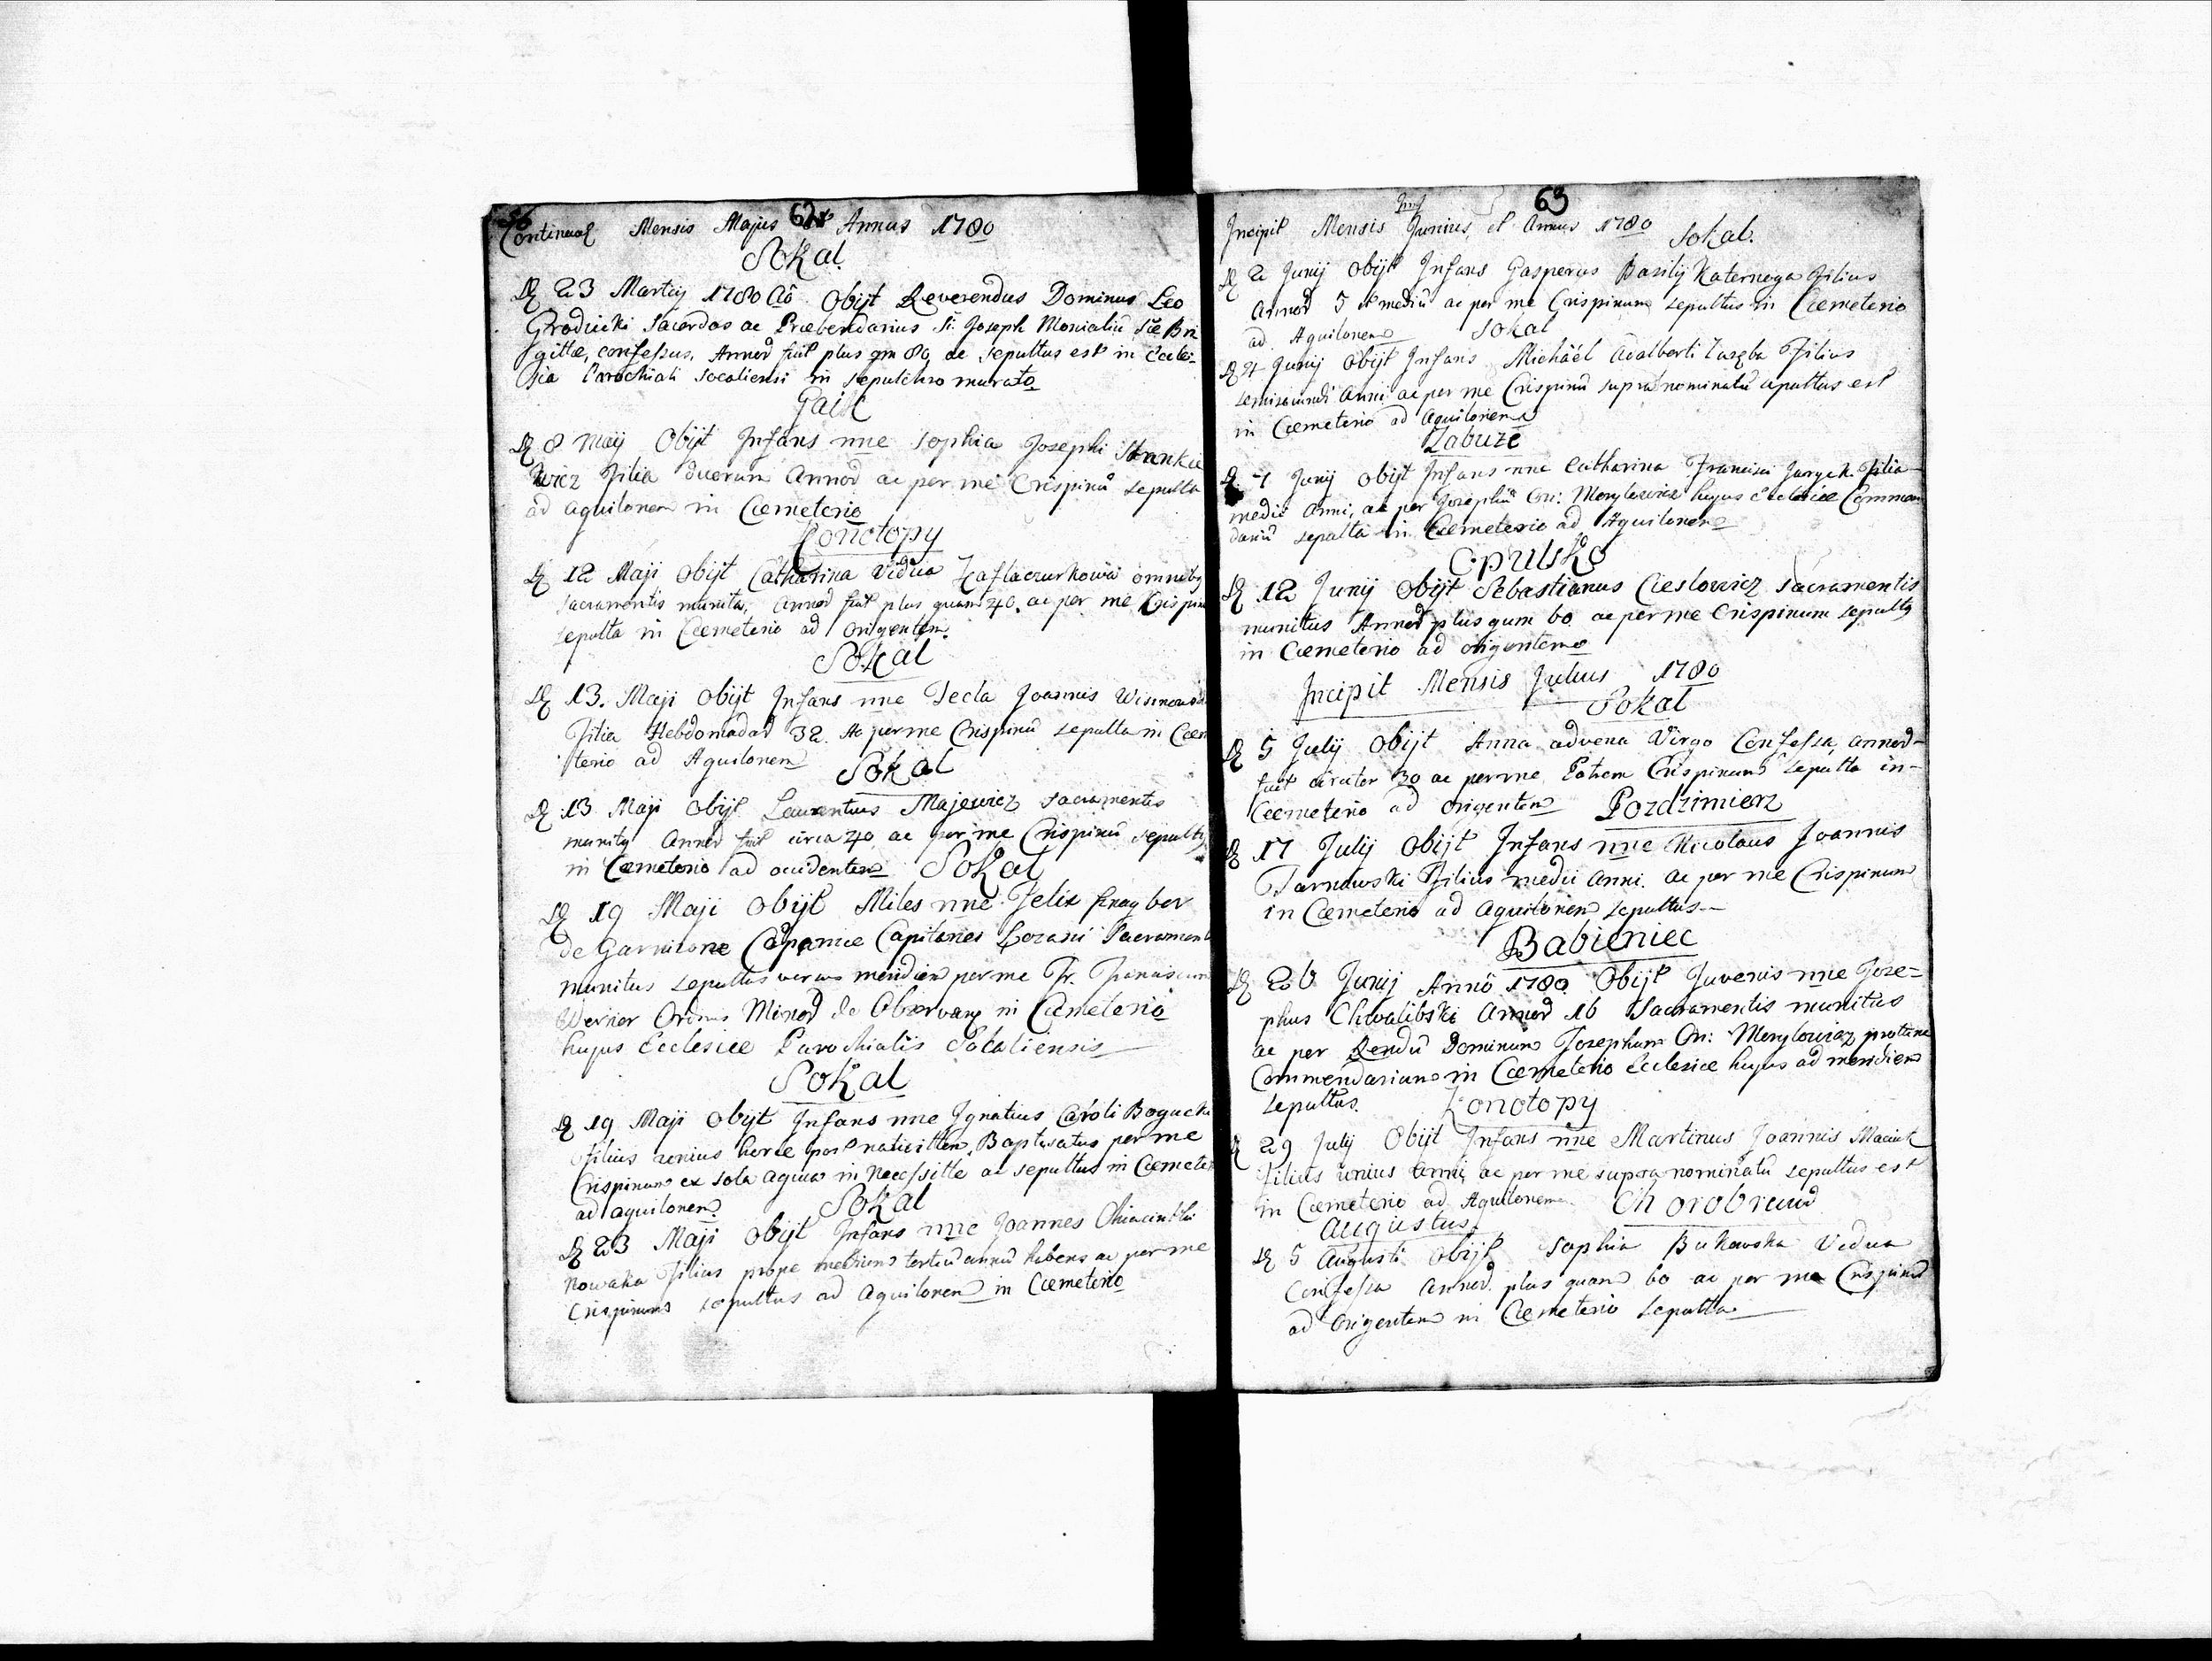 56
62
Continuat Mensis Majus et Annus 1780
Sokal
D 23 Martij 1780 Aô. Obijt Reverendus Dominus Leo
Grodzicki Sacerdos ac Præbendarius St: Joseph Monialiũ Stæ Bri
gittæ, confessus. Annoŕ fuit plus qm 80, ac sepultus est in Eccle-
sia Parochiali Socaliensi in sepulchro murato
Gaik
D 8 Maij Obijt Infans nne Sophia Josephi Stankie
wicz Filia duorum Annoŕ ac per me Crispinũ sepulta
ad aquilonem in Cæmeterio
Konotopy
D 12 Maji Obijt Catharina Vidua omnibg
sacramentis munita, Annoŕ fuit plus quam 40. ac per me Crispin
sepulta in Cæmeterio ad origentem.
Sokal
D 13. Maji Obijt Infans nne Tecla Joannis
Filia Hebdomadaŕ 32. Ac per me Crispinũ sepulta in Cæm
terio ad Aquilonem
Sokal
D 13 Maji Obijt Laurentius Majewicz sacramentis
munitg Annoŕ fuit circa 40, ac per me Crispinũ sepultg
in Cæmeterio ad occidentem Sokal
D 19 Maji Obijt Miles nne Felix
de Garnizone Capitanei Sacrament
munitus sepultus versus meridiem per me Fr.
Werner Ordinis Minoŕ de Observanz in Cæmeterio
hujus Ecclesiæ Parochialis Socaliensis
Sokal
D 19 Maji Obijt Infans nne Ignatius Caroli Bogucki
Filius unius horæ post nativittem, Baptisatus per me
Crispinum ex sola aqua in necessitte ac sepultus in Cæmeter
ad aquilonem. Sokal
D 23 Maji Obijt Infans nne Joannes
Nowaka Filius prope medium tertiũ annũ habens ac per me
Crispinum sepultus ad Aquilonem in Cæmeterio
63
Incipit Mensis Junius, et Annus 1780 Sokal.
D 2 Junij Obijt Infans Gasperus Basilij Katernoga Filius
Annoŕ 5 et mediũ ac per me Crispinum sepultus in Cæmeterio
ad Aquilonem Sokal
D Junij Obijt Infans Michaël Adalberti Filius
anni ac per me Crispinũ supra nominatũ sepultus est
in Cæmeterio ad aquilonem
Zabuże
D 7 Junij Obijt Infans nne Catharina Francisci Filia
medii Anni, ac per Josephũ On: hujus Ecclesiæ Commen
dariũ sepulta in Cæmeterio ad Aquilonem
Opulsko
D 12 Junij Obijt Sebastianus Cieslowicz sacramentis
munitus Annoŕ plus qum 60 ac per me Crispinum sepultg
in Cæmeterio ad origentem
Incipit Mensis Julius 1780
Sokal
D 5 Julij Obijt Anna advena Virgo Confessa, annoŕ-
fuit circiter 30 ac per me Patrem Crispinum sepulta in-
Cæmeterio ad origentem Pozdzimierz
D 17 Julij Obijt Infans nne Nicolaus Joannis
Tarnawski Filius medii anni. ac per me Crispinum
in Cæmeterio ad aquilonem sepultus.-
Babieniec
D 26 Junij Annô 1780 Obijt Juvenis nne Jose-
phus Chwalibski Annoŕ 16 Sacramentis munitus
ac per Rendũ Dominum Josephum On: protunc
Commendarium in Cæmeterio Ecclesiæ hujus ad meridiem
sepultus. Konotopy
D 29 Julij Obijt Infans nne Martinus Joannis
Filius unius anni, ac per me supra nominatũ sepultus est
in Cæmeterio ad Aquilonem.
Augustus
D 5 Augusti Obijt Sophia Bukowska Vidua
Confessa Annoŕ. plus quam 60 ac per me Crispinũ
ad Origentem in Cæmeterio sepulta